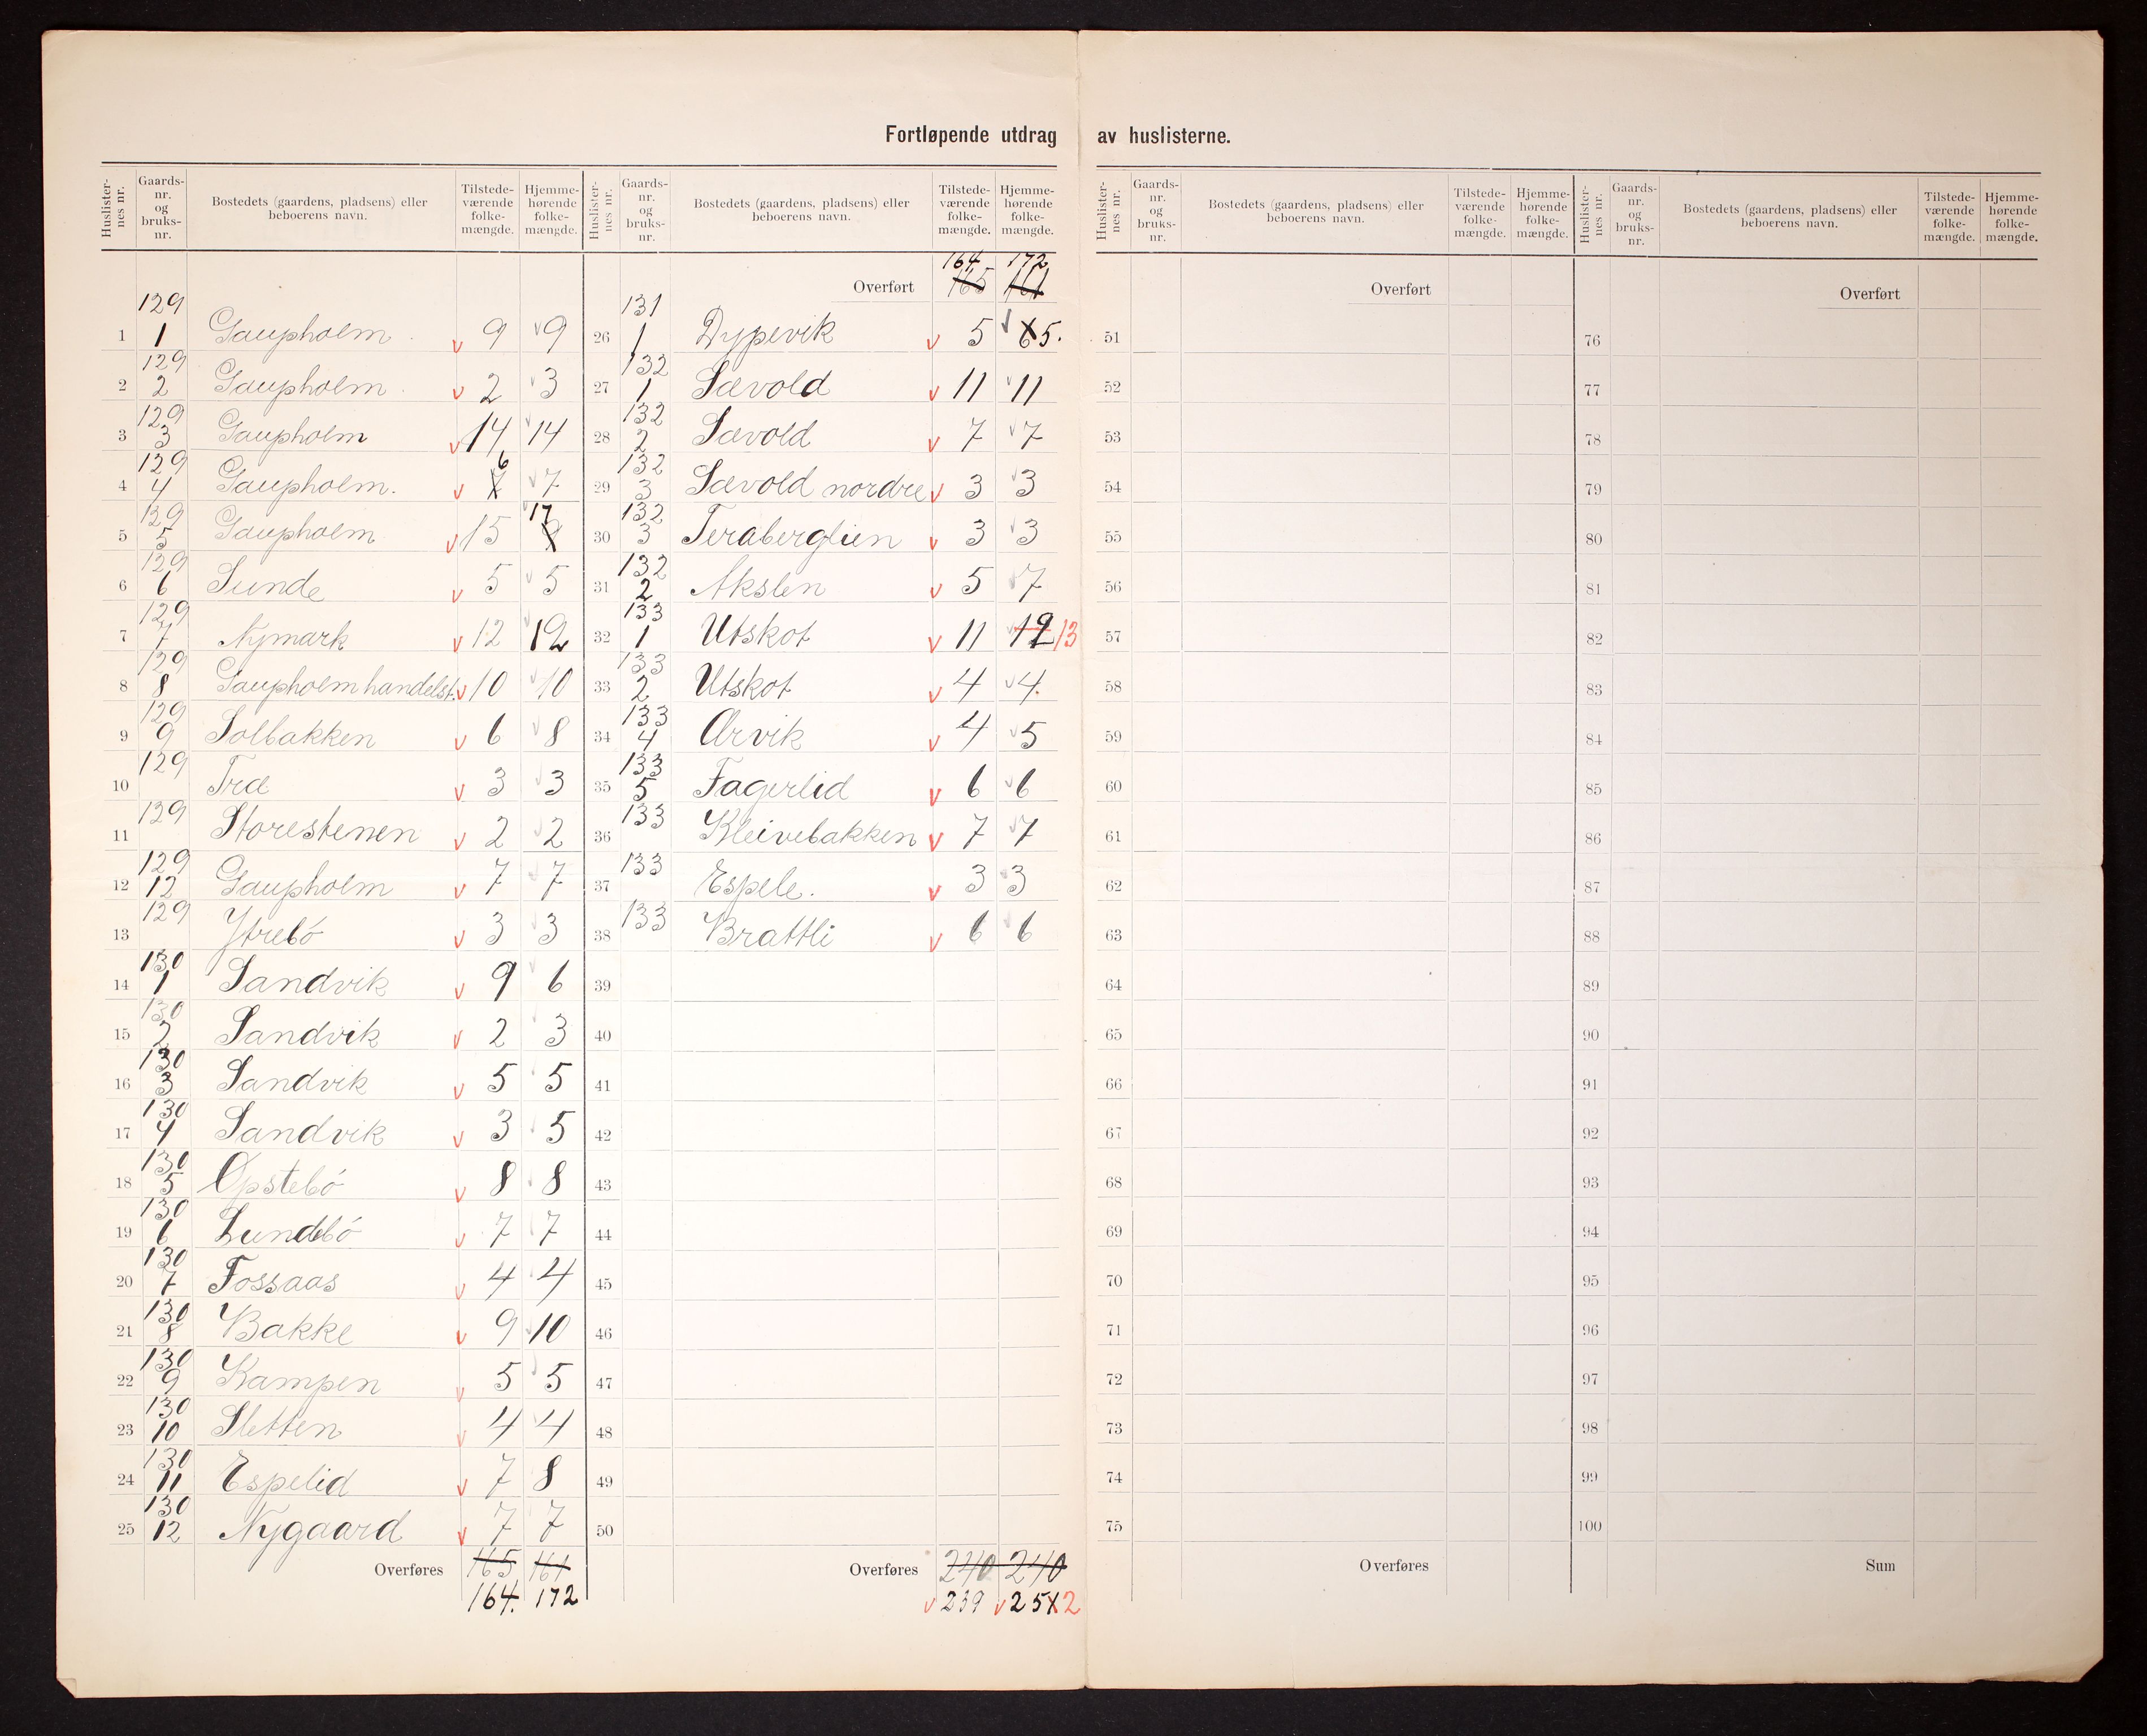 Fortløpende utdrag av huslisterne.
Huslister-nes nr. Gaards-nr. og bruks-nr. Bostedets (gaardens, pladsens) eller beboerens navn. Tilstede-værende folke-mængde. Hjemme-hørende folke-mængde.
1 129 1 Gaupholm v 9 v 9
2 129 2 Gaupholm v 2 v 3
3 129 3 Gaupholm v 14 v 14
4 129 4 Gaupholm. v 7 6 v 7
5 129 5 Gaupholm v 15 17
6 129 6 Sunde v 5 v 5
7 129 7 Nymark v 12 v 12
8 129 8 Gaupholm handelst. v 10 v 10
9 129 9 Solbakken v 6 v 8
10 129 Træ v 3 v 3
11 129 Storestenen v 2 v 2
12 129 12 Gaupholm v 7 v 7
13 129 Ytrebó v 3 v 3
14 130 1 Sandvik v 9 v 6
15 130 2 Sandvik v 2 v 3
16 130 3 Sandvik v 5 v 5
17 130 4 Sandvik v 3 v 5
18 130 5 Opstebó v 8 v 8
19 130 6 Lundebó v 7 v 7
20 130 7 Fossaas v 4 v 4
21 130 8 Bakke v 9 v 10
22 130 9 Kampen v 5 v 5
23 130 10 Sletten v 4 v 4
24 130 11 Espelid v 7 8
25 130 12 Nygaard v 7 7
Overføres 165 161
164. 172
Huslister-nes nr. Gaards-nr. og bruks-nr. Bostedets (gaardens, pladsens) eller beboerens navn. Tilstede-værende folke-mængde. Hjemme-hørende folke-mængde.
164 172
Overført 165 161
26 131 1 Dypevik v 5 v 6 5.
27 132 1 Sævold v 11 v 11
28 132 2 Sævold v 7 v 7
29 132 3 Sævold nordre v 3 v 3
30 132 3 Teraberglien v 3 v 3
31 132 2 Akslen v 5 v 7
32 133 1 Utskot v 11 v 12 13
33 133 2 Utskot v 4 v 4.
34 133 4 Arvik v 4 v 5
35 133 5 Fagerlid v 6 v 6
36 133 Kleivebakken v 7 v 7
37 133 Espele. v 3 v 3
38 133 Brattli v 6 v 6
39
40
41
42
43
44
45
46
47
48
49
50
Overføres 240 240
v 239 v 251 2
Huslister-nes nr. Gaards-nr. og bruks-nr. Bostedets (gaardens, pladsens) eller beboerens navn. Tilstede-værende folke-mængde. Hjemme-hørende folke-mængde.
Overført
51
52
53
54
55
56
57
58
59
60
61
62
63
64
65
66
67
68
69
70
71
72
73
74
75
Overføres
Huslister-nes nr. Gaards-nr. og bruks-nr. Bostedets (gaardens, pladsens) eller beboerens navn. Tilstede-værende folke-mængde. Hjemme-hørende folke-mængde.
Overført
76
77
78
79
80
81
82
83
84
85
86
87
88
89
90
91
92
93
94
95
96
97
98
99
100
Sum